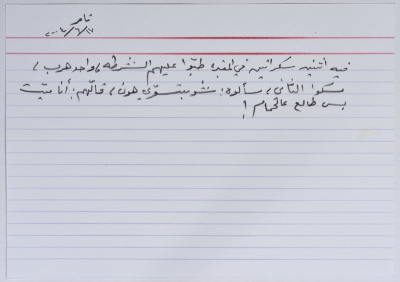 تامر
فيه اتنين سكرانين في المقبره طبّوا عليهم الشرطه، واحد هرب،
مسكوا الثاني، سألوه: شو بتسوّي هون، قالّهم: أنا ميّت
بس طالع عالحمام!